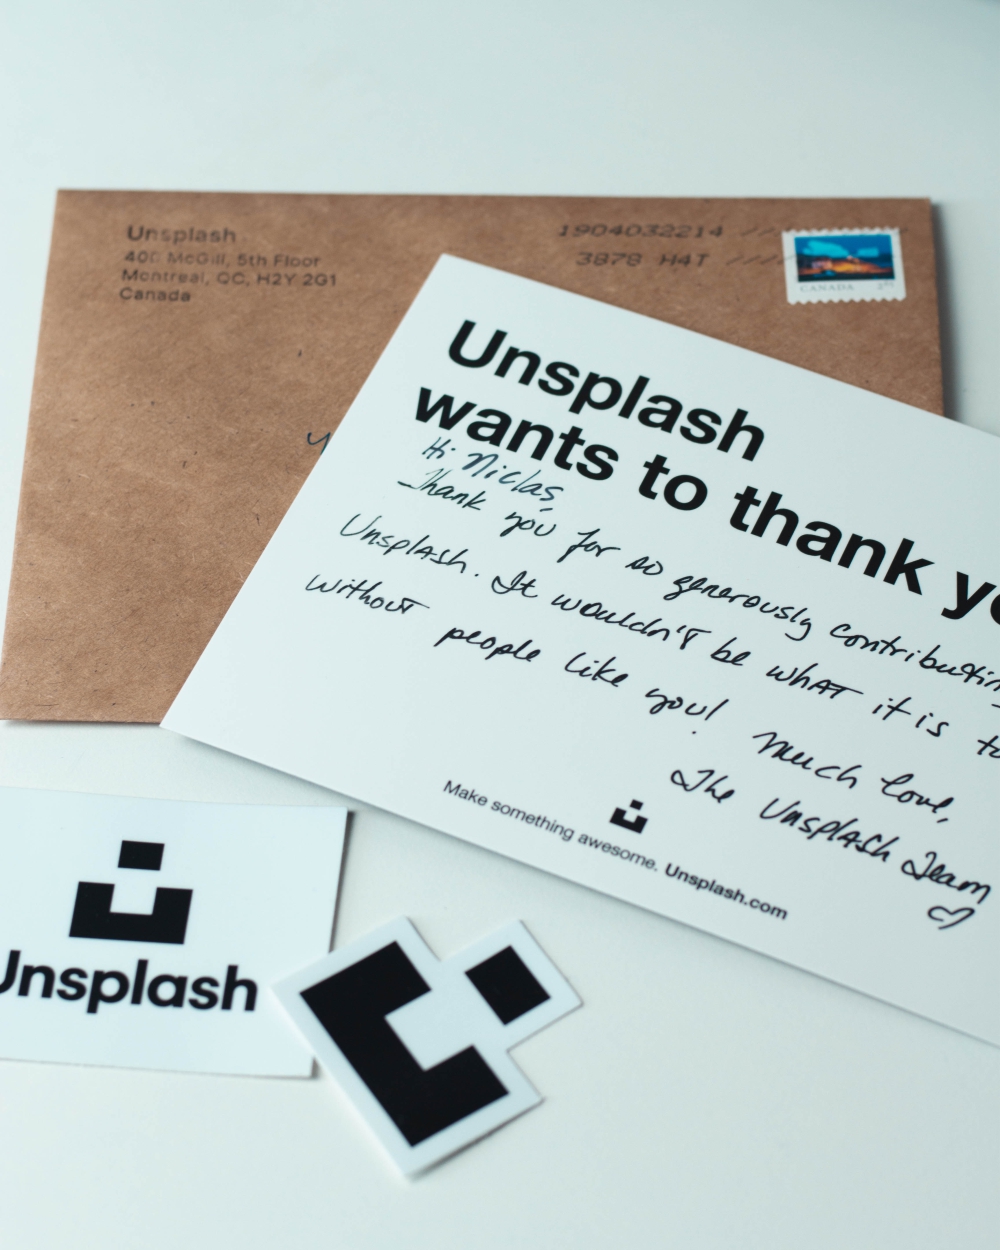 Unsplash
400 McGill, 5th Floor
Montreal, QC, H2Y 2G1
Canada
1904032214
3878 H4T
CANADA
Unsplash
wants to thank yo
Hi Niclas,
Thank you for so generously contributin
Unsplash. It wouldn't be what it is to
without people like you! Much love,
The Unsplash Team
Make something awesome. Unsplash.com
Unsplash